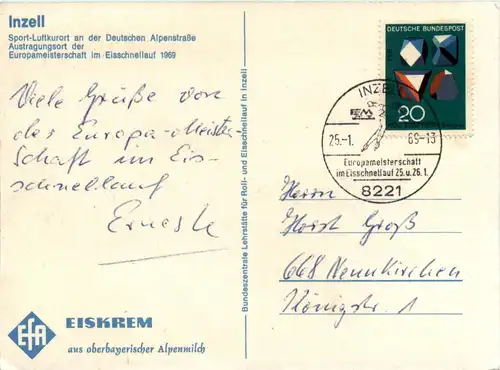 Inzell
Sport-Luftkurort an der Deutschen Alpenstraße
Austragungsort der
Europameisterschaft im Eisschnellauf 1969
Viele Grüße von
der Europa-Meister-
schaft im Eis-
schnellauf
EFA
EISKREM
aus oberbayerischer Alpenmilch
Bundeszentrale Lehrstätte für Roll- und Eisschnellauf in Inzell
DEUTSCHE BUNDESPOST
20
INZELL
25.-1.
69-13
Europameisterschaft
im Eisschnellauf 25.u.26.1.
8221
Herrn
Horst Groß
668 Neunkirchen
Königstr. 1